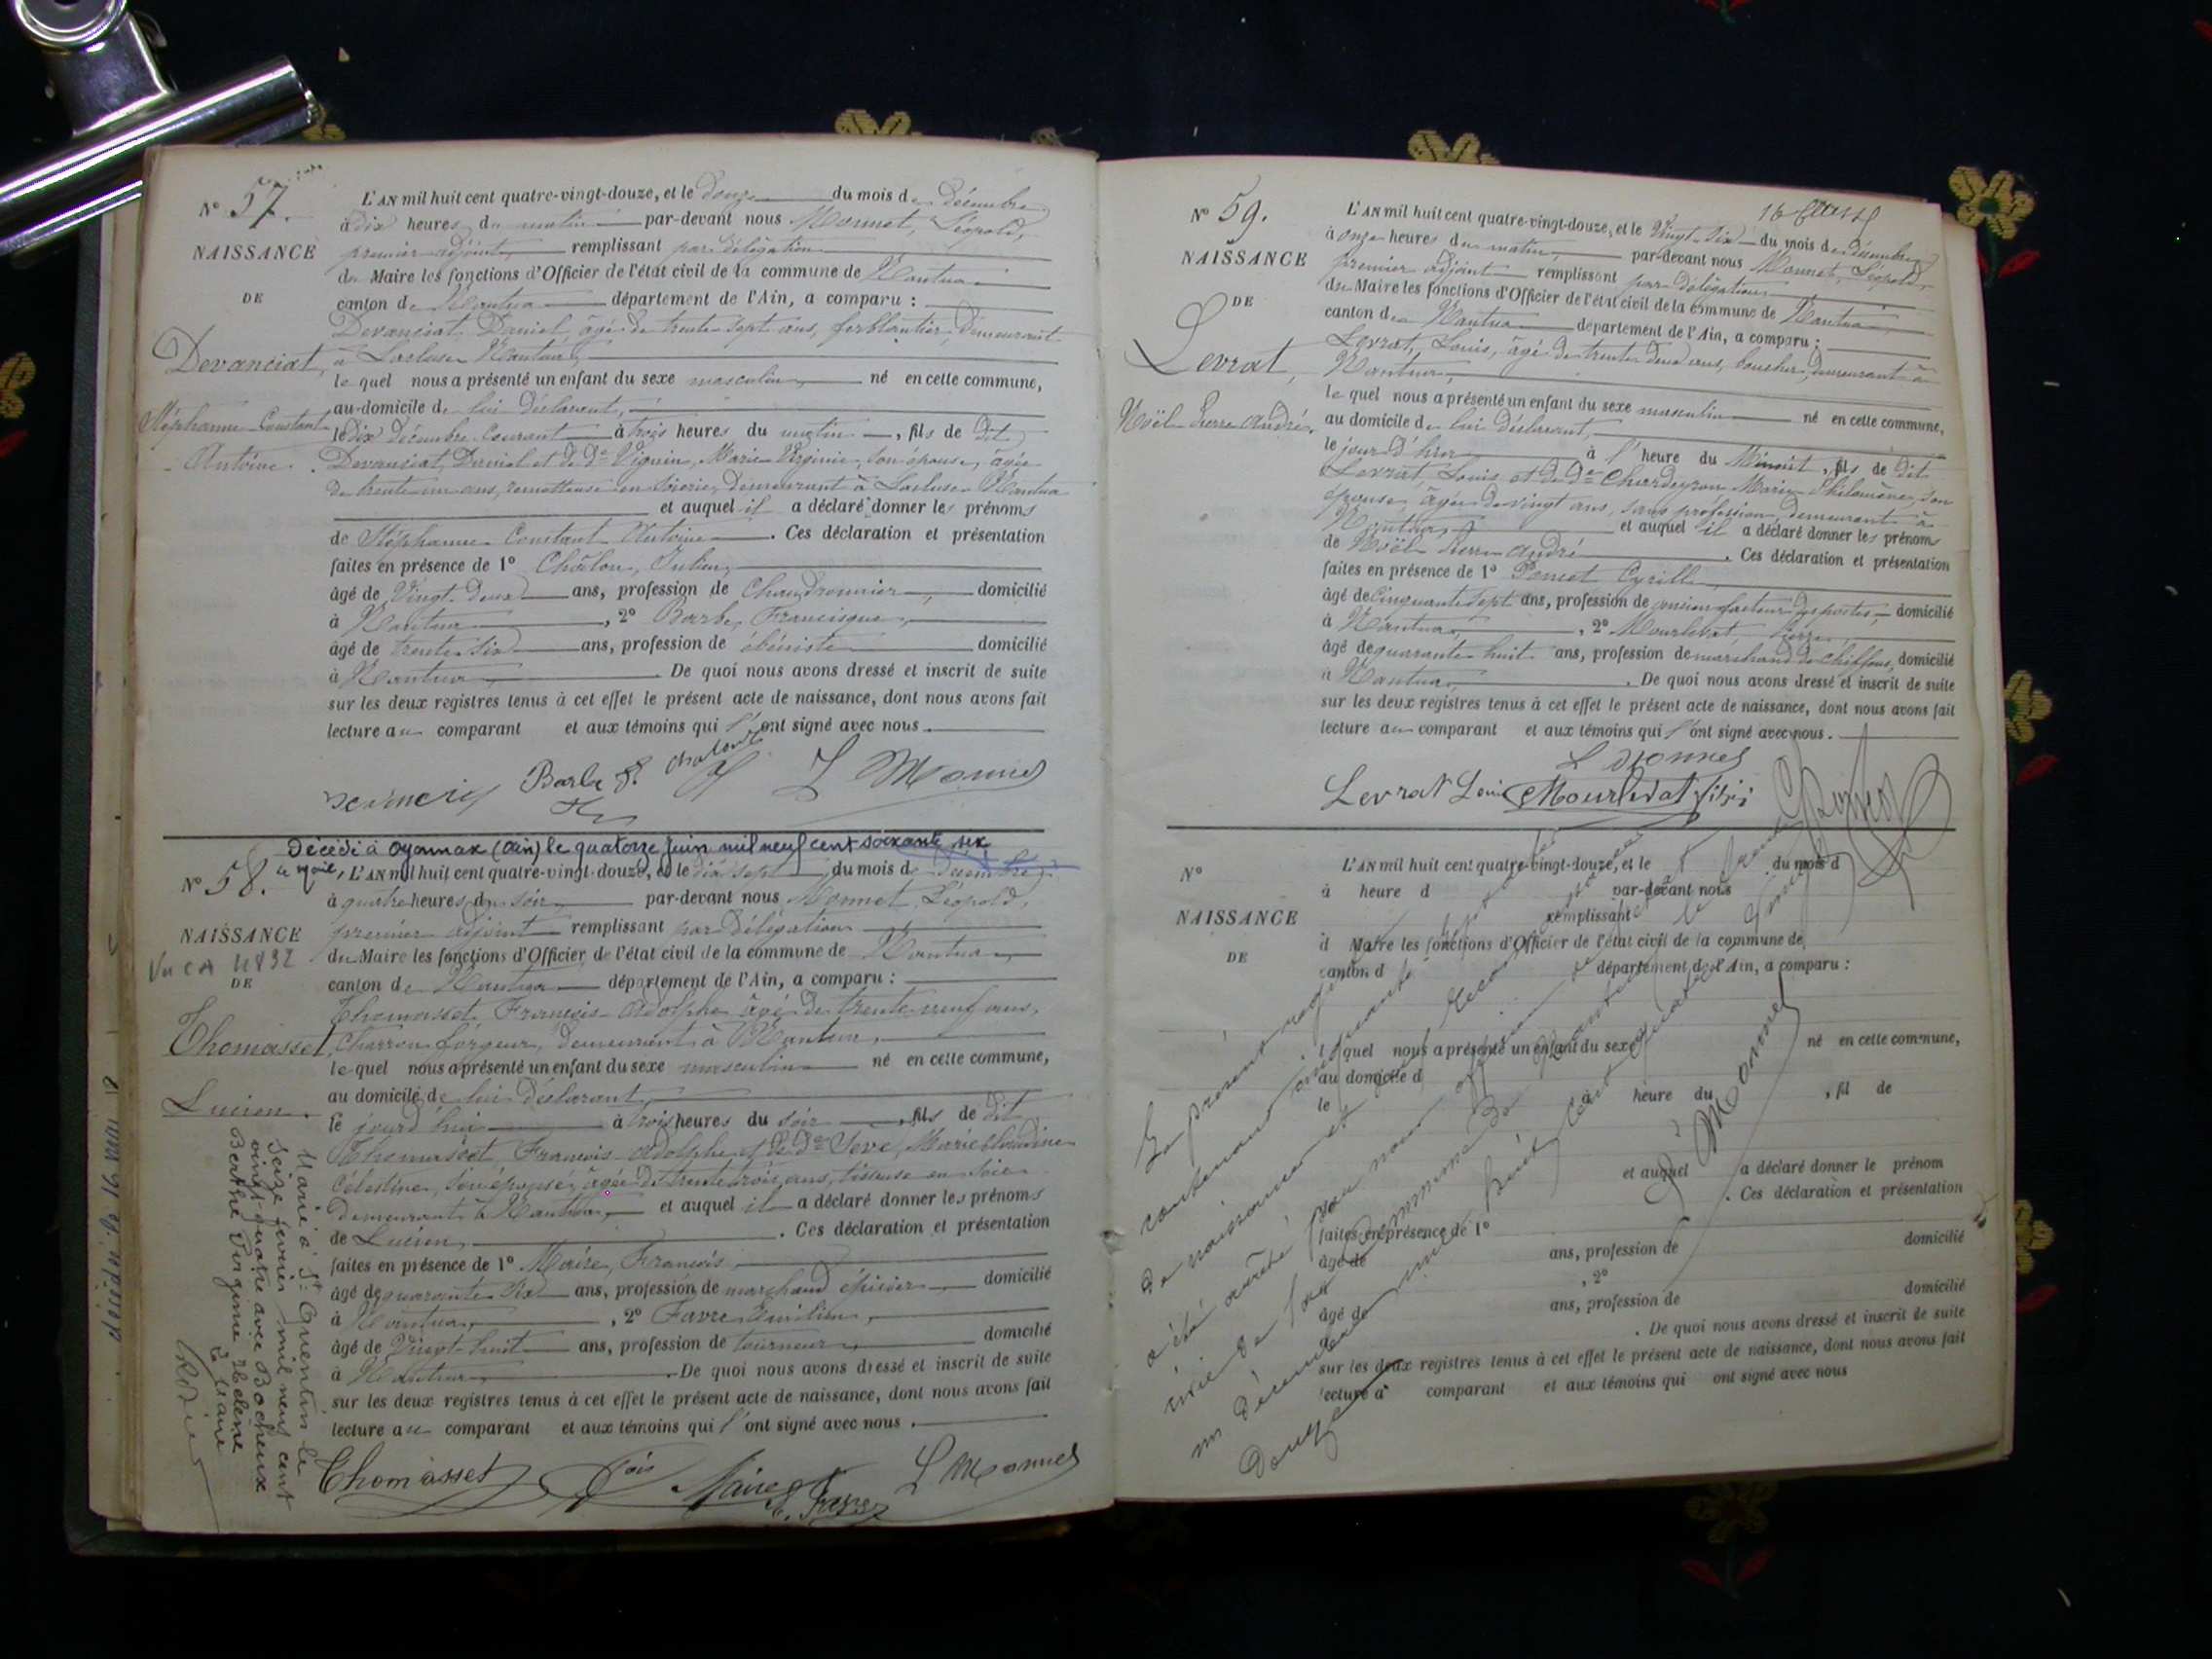 N° 57.
NAISSANCE
DE
Devanciat,
Stéphanne Constant
Antoine.
L'AN mil huit cent quatre-vingt-douze, et le douze du mois de Décembre
à dix heures du matin par-devant nous Monnet, Léopold,
premier adjoint remplissant par délégation
du Maire les fonctions d'Officier de l'état civil de la commune de Nantua
canton de Nantua département de l'Ain, a comparu :
Devanciat Daniel âgé de trente sept ans, ferblantier, demeurant
à Lacluse Nantua,
lequel nous a présenté un enfant du sexe masculin né en cette commune,
au domicile de lui déclarant,
le dix décembre courant à trois heures du matin, fils de dit
Devanciat, Daniel et de de Viguin, Marie Virginie, son épouse, âgée
de trente un ans, remetteuse en soierie, demeurant à Lacluse Nantua
et auquel il a déclaré donner les prénoms
de Stéphanne Constant Antoine. Ces déclaration et présentation
faites en présence de 1° Châlon, Julien,
âgé de vingt-deux ans, profession de Chaudronnier, domicilié
à Nantua, 2° Barbe, Francisque,
âgé de trente six ans, profession de ébéniste domicilié
à Nantua, De quoi nous avons dressé et inscrit de suite
sur les deux registres tenus à cet effet le présent acte de naissance, dont nous avons fait
lecture au comparant et aux témoins qui l'ont signé avec nous.
Barbe F. Chalon L Monnet
Décédé à Oyonnax (Ain) le quatorze juin mil neuf cent soixante six
N° 58.
NAISSANCE
Vu CA 4832
DE
Thomasset
Lucien.
L'AN mil huit cent quatre-vingt-douze, et le dix sept du mois de Décembre
à quatre heures du soir par-devant nous Monnet, Léopold,
premier adjoint remplissant par délégation
du Maire les fonctions d'Officier de l'état civil de la commune de Nantua
canton de Nantua département de l'Ain, a comparu :
Thomasset, François Adolphe âgé de trente neuf ans,
Charron forgeur, demeurant à Nantua,
lequel nous a présenté un enfant du sexe masculin né en cette commune,
au domicile de lui déclarant,
le jourd'hui à trois heures du soir, fils de dit
Thomasset François Adolphe et de de Sève, Marie Claudine
Célestine, son épouse, âgée de trente trois ans, tisseuse en soie
demeurant à Nantua, et auquel il a déclaré donner les prénoms
de Lucien. Ces déclaration et présentation
faites en présence de 1° Maire, François,
âgé de quarante six ans, profession de marchand épicier domicilié
à Nantua, 2° Favre Emilien,
âgé de vingt-huit ans, profession de tourneur domicilié
à Nantua, De quoi nous avons dressé et inscrit de suite
sur les deux registres tenus à cet effet le présent acte de naissance, dont nous avons fait
lecture au comparant et aux témoins qui l'ont signé avec nous.
Thomasset fois Maire E. Favre L Monnet
Marié à St. Quentin le
seize février mil neuf cent
vingt-quatre avec Bocheux
Berthe Virginie Hélène
Le Maire
N° 59.
NAISSANCE
DE
Levrat,
Noël Pierre André.
L'AN mil huit cent quatre-vingt-douze, et le vingt-six du mois de Décembre
à onze heures du matin, par-devant nous Monnet, Léopold,
premier adjoint remplissant par délégation
du Maire les fonctions d'Officier de l'état civil de la commune de Nantua
canton de Nantua département de l'Ain, a comparu :
Levrat, Louis, âgé de trente deux ans, boucher, demeurant à
Nantua,
lequel nous a présenté un enfant du sexe masculin né en cette commune,
au domicile de lui déclarant,
le jour d'hier à l'heure du Minuit, fils de dit
Levrat, Louis et de de Chardeyron Marie Philomène, son
épouse, âgée de vingt ans, sans profession, demeurant à
Nantua, et auquel il a déclaré donner les prénoms
de Noël Pierre André. Ces déclaration et présentation
faites en présence de 1° Poncet Cyrille
âgé de cinquante sept ans, profession de ancien facteur des postes, domicilié
à Nantua, 2° Mourlevat, Pierre,
âgé de quarante huit ans, profession de marchand de chiffons, domicilié
à Nantua, De quoi nous avons dressé et inscrit de suite
sur les deux registres tenus à cet effet le présent acte de naissance, dont nous avons fait
lecture au comparant et aux témoins qui l'ont signé avec nous.
L Monnet
Levrat Louis Mourlevat
N°
NAISSANCE
DE
L'AN mil huit cent quatre-vingt-douze, et le du mois d
à heure d par-devant nous
remplissant
d Maire les fonctions d'Officier de l'état civil de la commune de
canton d département de l'Ain, a comparu :
lequel nous a présenté un enfant du sexe né en cette commune,
au domicile d
le à heure du, fil de
et auquel a déclaré donner le prénom
. Ces déclaration et présentation
faites en présence de 1°
âgé de ans, profession de domicilié
, 2°
âgé de ans, profession de domicilié
à . De quoi nous avons dressé et inscrit de suite
sur les deux registres tenus à cet effet le présent acte de naissance, dont nous avons fait
lecture à comparant et aux témoins qui ont signé avec nous
Le présent registre
contenant cinquante
de naissances et
a été arrêté par nous officier de l'état
civil de la commune de Nantua le trente
un Décembre mil huit cent quatre vingt
Douze
L Monnet